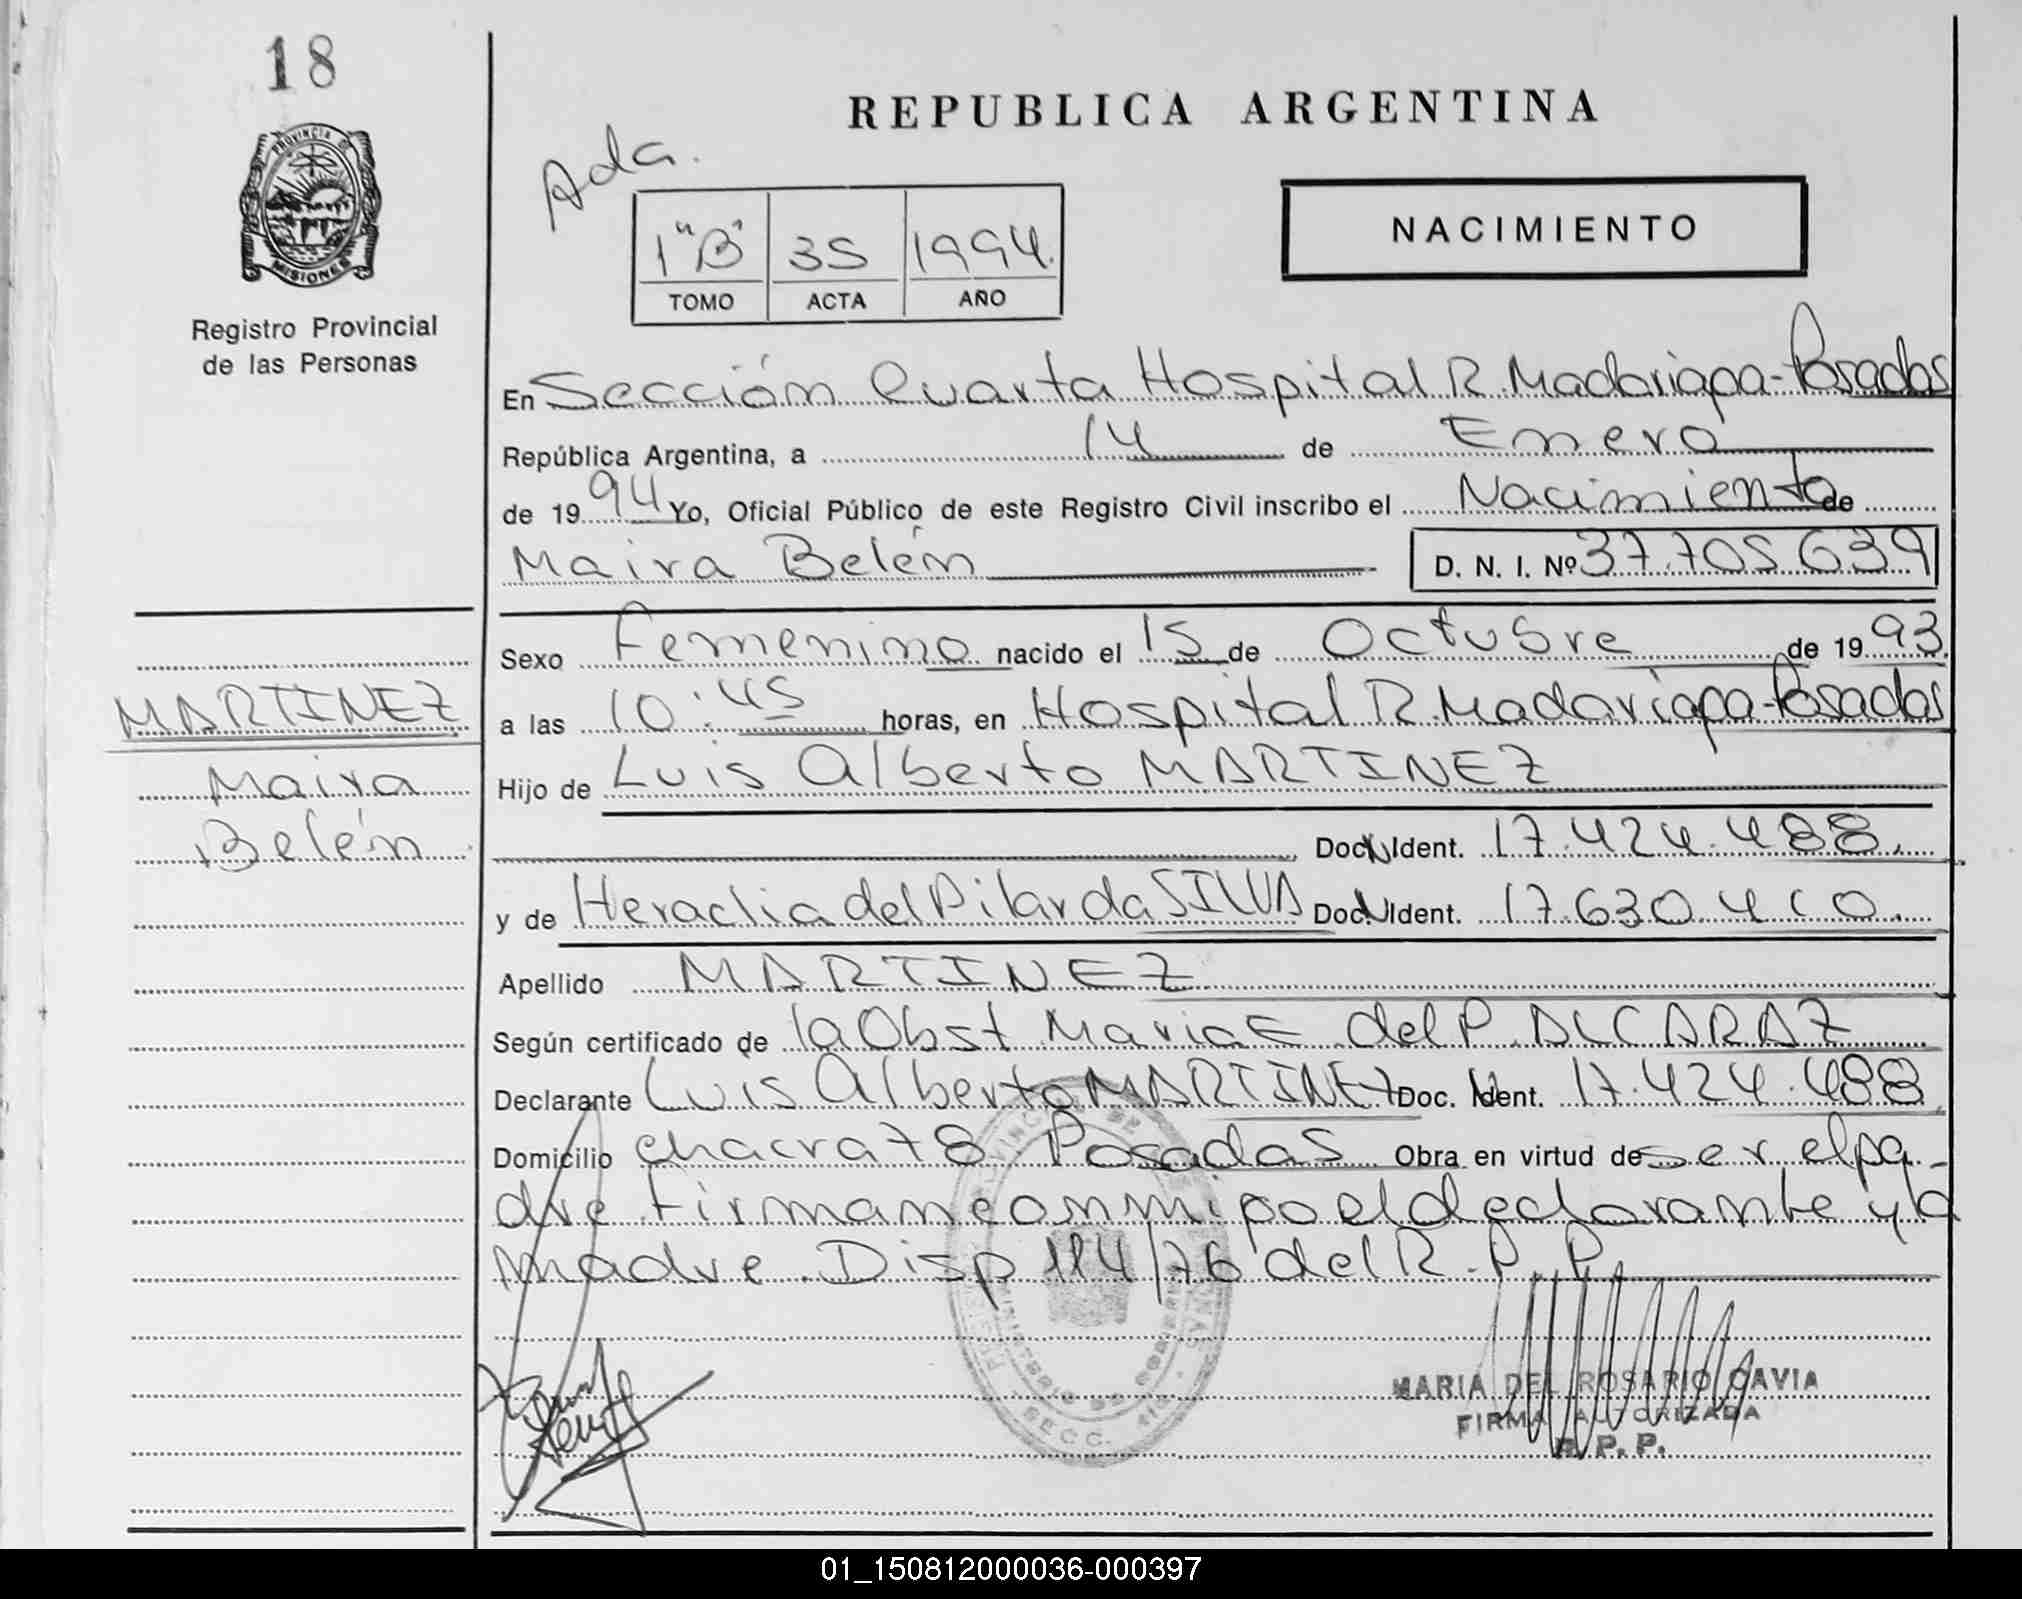 18
REPUBLICA ARGENTINA
Ada.
PROVINCIA DE
MISIONES
Registro Provincial
de las Personas
1"B" 35 1994.
TOMO ACTA AÑO
NACIMIENTO
En Sección Cuarta Hospital R. Madariaga-Posadas
República Argentina, a 14 de Enero
de 1994 Yo, Oficial Público de este Registro Civil inscribo el Nacimiento de
Maira Belén D. N. I. Nº 37.705.639
Sexo Femenino nacido el 15 de Octubre de 1993.
a las 10:45 horas, en Hospital R. Madariaga-Posadas
Hijo de Luis Alberto MARTINEZ
Doc. Ident. 17.424.488.
y de Heraclia del Pilar da SILVA Doc. Ident. 17.630.410.
Apellido MARTINEZ
Según certificado de la Obst Maria E. del P. ALCARAZ
Declarante Luis Alberto MARTINEZ Doc. Ident. 17.424.488
Domicilio chacra 78 Posadas Obra en virtud de ser el pa-
dre firman conmigo el declarante y la
madre. Disp 114/76 del R. P. P.
MARTINEZ
Maira
Belén
MARIA DEL ROSARIO GAVIA
FIRMA AUTORIZADA
R. P. P.
01_150812000036-000397